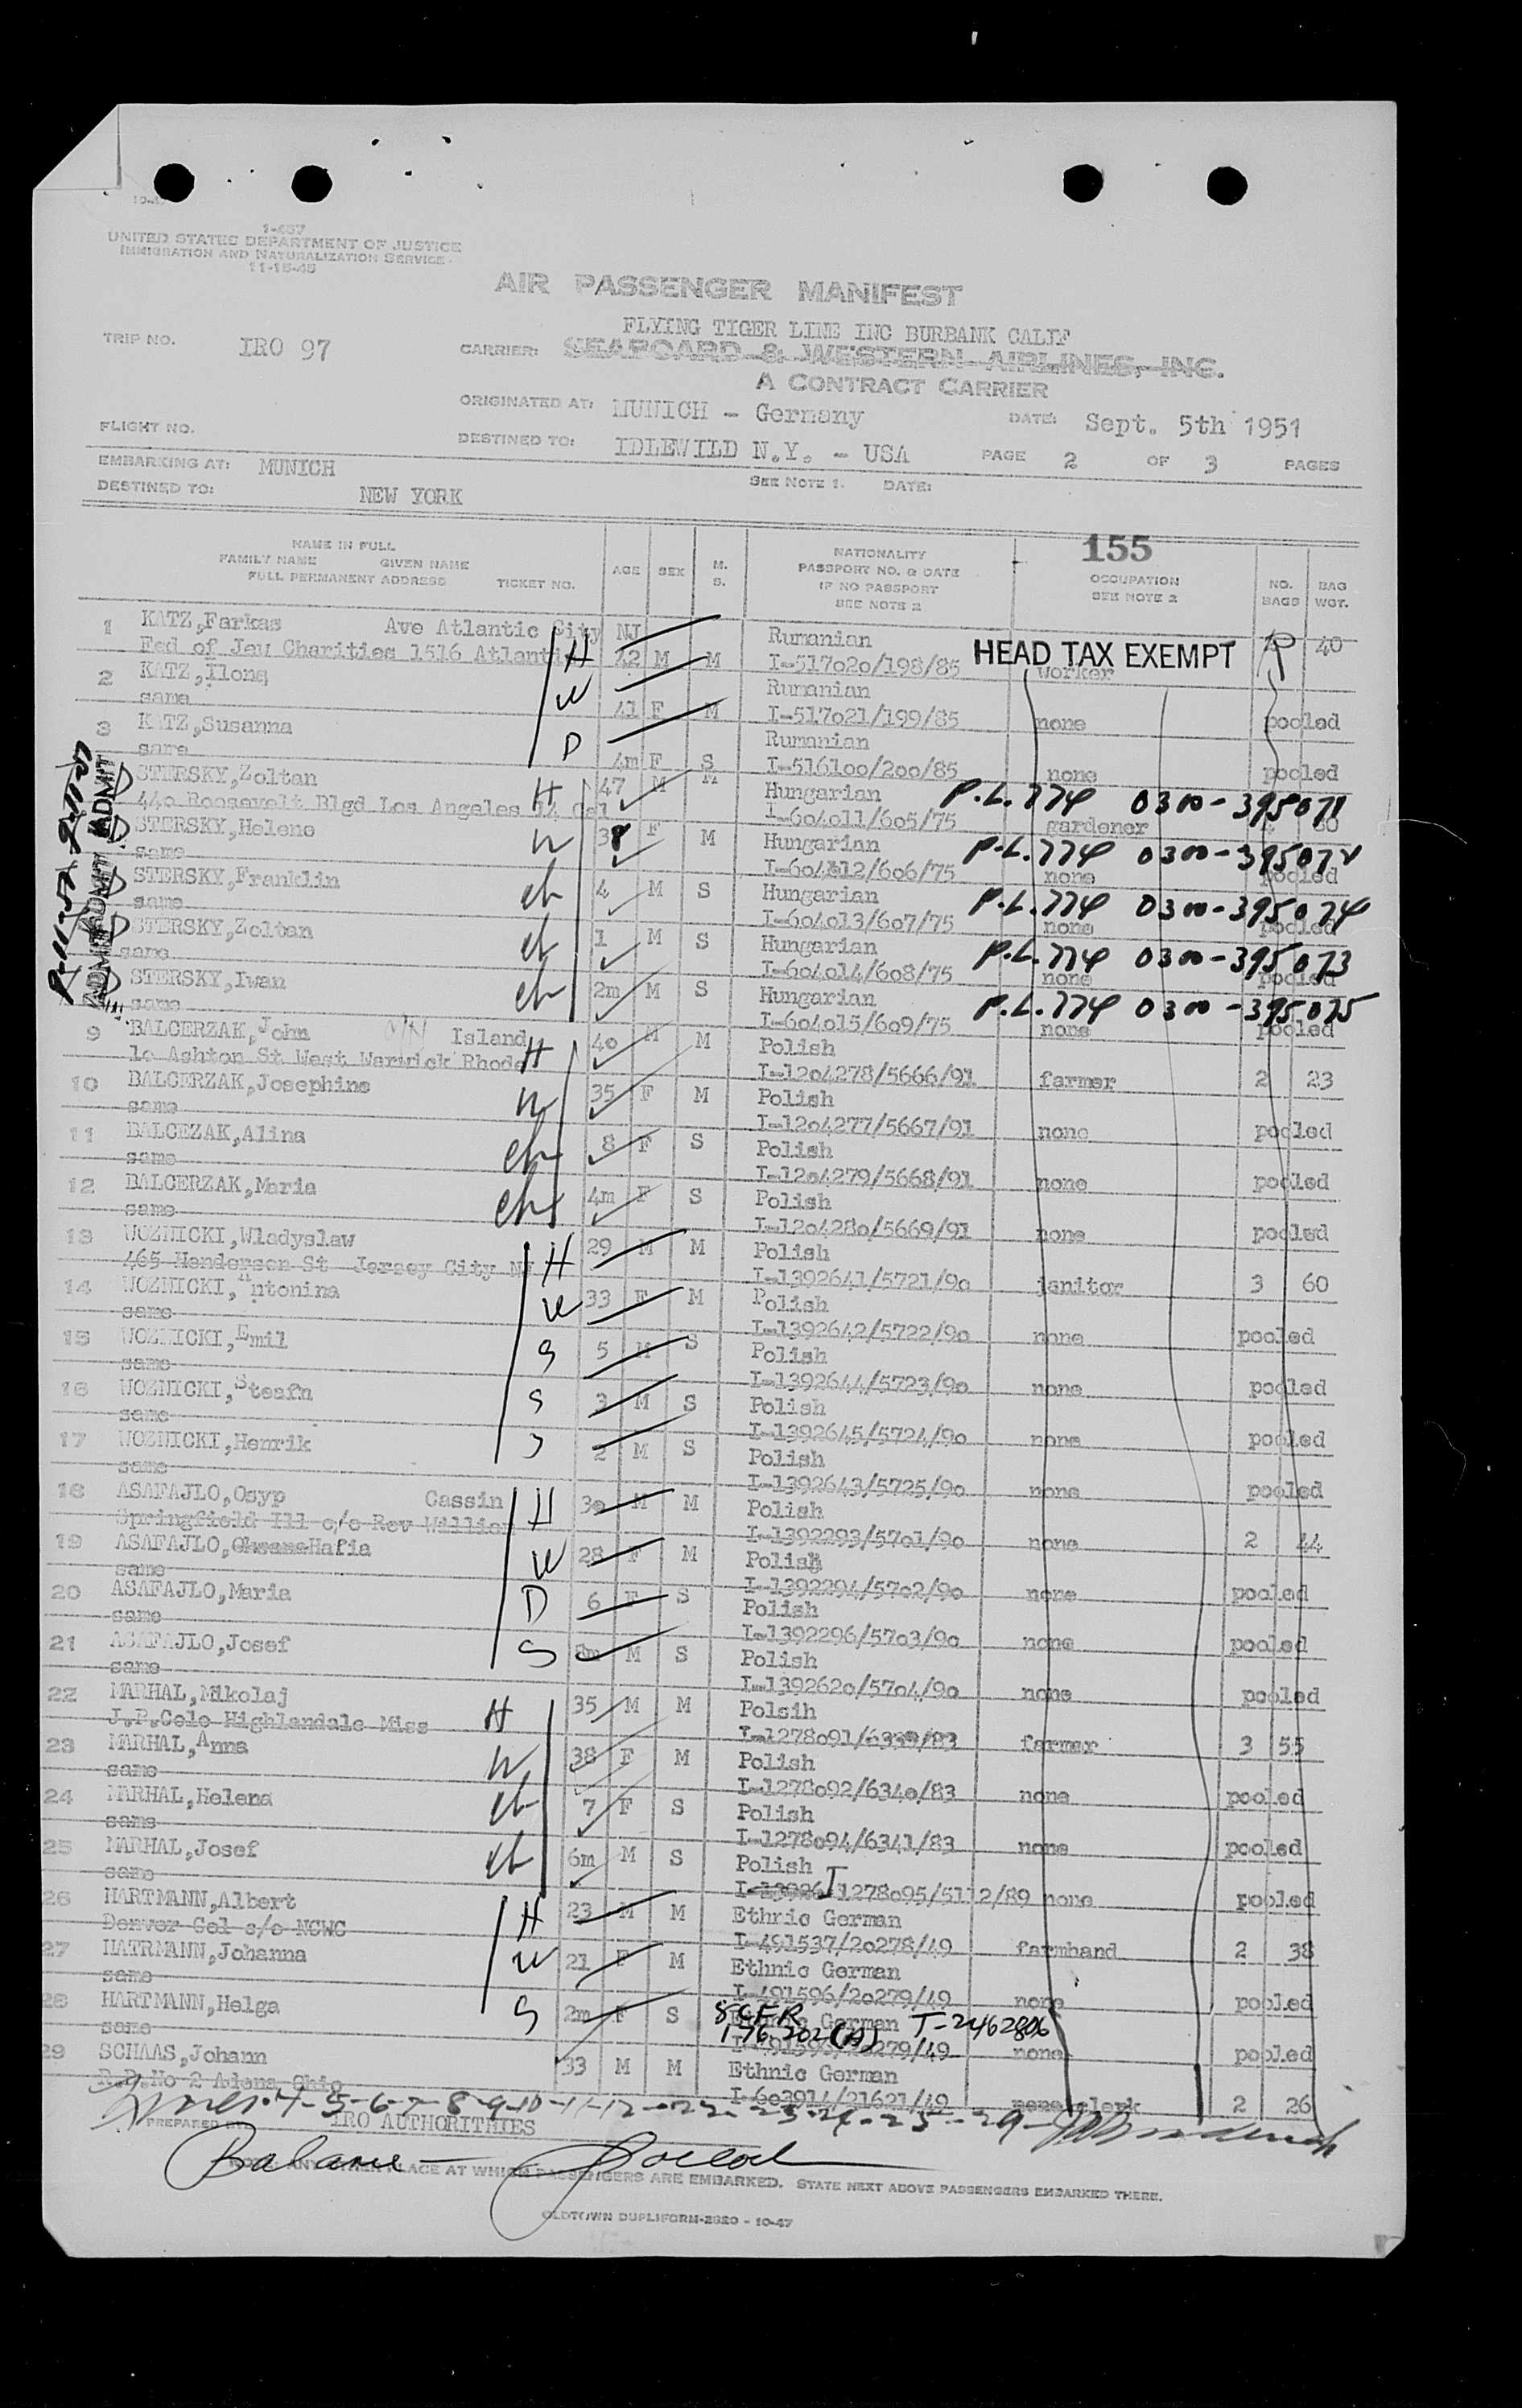 1-457
UNITED STATES DEPARTMENT OF JUSTICE
IMMIGRATION AND NATURALIZATION SERVICE
11-15-45
AIR PASSENGER MANIFEST
FLYING TIGER LINE INC BURBANK CALIF
TRIP NO. IRO 97 CARRIER: SEABOARD & WESTERN AIRLINES, INC.
A CONTRACT CARRIER
ORIGINATED AT: MUNICH - Germany DATE: Sept. 5th 1951
FLIGHT NO. DESTINED TO: IDLEWILD N.Y. - USA PAGE 2 OF 3 PAGES
EMBARKING AT: MUNICH SEE NOTE 1. DATE:
DESTINED TO: NEW YORK
155
NAME IN FULL
FAMILY NAME GIVEN NAME
FULL PERMANENT ADDRESS TICKET NO.
AGE SEX M. S.
NATIONALITY
PASSPORT NO. & DATE
IF NO PASSPORT
SEE NOTE 2
OCCUPATION
SEE NOTE 2
NO. BAGS BAG WGT.
HEAD TAX EXEMPT
1 KATZ,Farkas Ave Atlantic City NJ Rumanian 40
Fed of Jew Charities 1516 Atlantic H 42 M M I-517020/198/85 worker
2 KATZ,Ilona W Rumanian
same 41 F M I-517021/199/85 none pooled
3 KATZ,Susanna D Rumanian
same 4m F S I-516100/200/85 none pooled
STERSKY,Zoltan H 47 M M Hungarian P.L. 774 0300-395071
440 Roosevelt Blgd Los Angeles 14 Cal I-604011/605/75 gardener
STERSKY,Helene W 38 F M Hungarian P.L. 774 0300-395072
same I-604012/606/75 none pooled
STERSKY,Franklin ch 4 M S Hungarian P.L. 774 0300-395074
same I-604013/607/75 none pooled
STERSKY,Zoltan ch 1 M S Hungarian P.L. 774 0300-395073
same I-604014/608/75 none pooled
STERSKY,Iwan ch 2m M S Hungarian P.L. 774 0300-395075
same I-604015/609/75 none pooled
9 BALCERZAK,John Island 40 M M Polish
10 Ashton St West Warwick Rhode H I-1204278/5666/91 farmer 2 23
10 BALCERZAK,Josephine W 35 F M Polish
same I-1204277/5667/91 none pooled
11 BALCEZAK,Alina ch 8 F S Polish
same I-1204279/5668/91 none pooled
12 BALCERZAK,Maria ch 4m F S Polish
same I-1204280/5669/91 none pooled
13 WOZNICKI,Wladyslaw H 29 M M Polish
465 Henderson St Jersey City NJ I-1392641/5721/90 janitor 3 60
14 WOZNICKI,Antonina W 33 F M Polish
same I-1392642/5722/90 none pooled
15 WOZNICKI,Emil S 5 M S Polish
same I-1392644/5723/90 none pooled
16 WOZNICKI,Steafn S 3 M S Polish
same I-1392645/5724/90 none pooled
17 WOZNICKI,Henrik S 2 M S Polish
same I-1392643/5725/90 none pooled
18 ASAFAJLO,Osyp Cassin H 30 M M Polish
Springfield Ill c/o Rev William I-1392293/5701/90 none 2 44
19 ASAFAJLO,OksanaHafia W 28 F M Polish
same I-1392294/5702/90 none pooled
20 ASAFAJLO,Maria D 6 F S Polish
same I-1392296/5703/90 none pooled
21 ASAFAJLO,Josef S M S Polish
same I-1392620/5704/90 none pooled
22 MARHAL,Mikolaj H 35 M M Polsih
J.P.Cole Highlandale Miss I-1278091/6339/83 farmer 3 55
23 MARHAL,Anna W 38 F M Polish
same I-1278092/6340/83 none pooled
24 MARHAL,Helena ch 7 F S Polish
same I-1278094/6341/83 none pooled
25 MARHAL,Josef ch 6m M S Polish
same I-13926 I 1278095/5112/89 none pooled
26 HARTMANN,Albert H 23 M M Ethnic German
Denver Col c/o NCWC I-491537/20278/49 farmhand 2 38
27 HATRMANN,Johanna W 21 F M Ethnic German
same I-491596/20279/49 none pooled
28 HARTMANN,Helga S 2m F S 8 CFR German T-2462806
same 176.202(A) 279/49 none pooled
29 SCHAAS,Johann 33 M M Ethnic German
R.D.No 2 Adena Ohio I-603914/21621/49 clerk 2 26
Lines 4-5-6-7-8-9-10-11-12-22-23-24-25-29-
PREPARED BY IRO AUTHORITHIES
Balance
ANY OTHER PLACE AT WHICH PASSENGERS ARE EMBARKED. STATE NEXT ABOVE PASSENGERS EMBARKED THERE.
OLDTOWN DUPLIFORM-2820 - 10-47